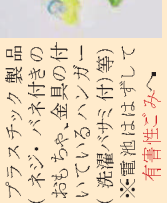 プラスチック製品
(ネジ・バネ付きの
おもちゃ、金具の付
いているハンガー
(洗濯バサミ付)等)
※電池ははずして
有害性ごみへ。